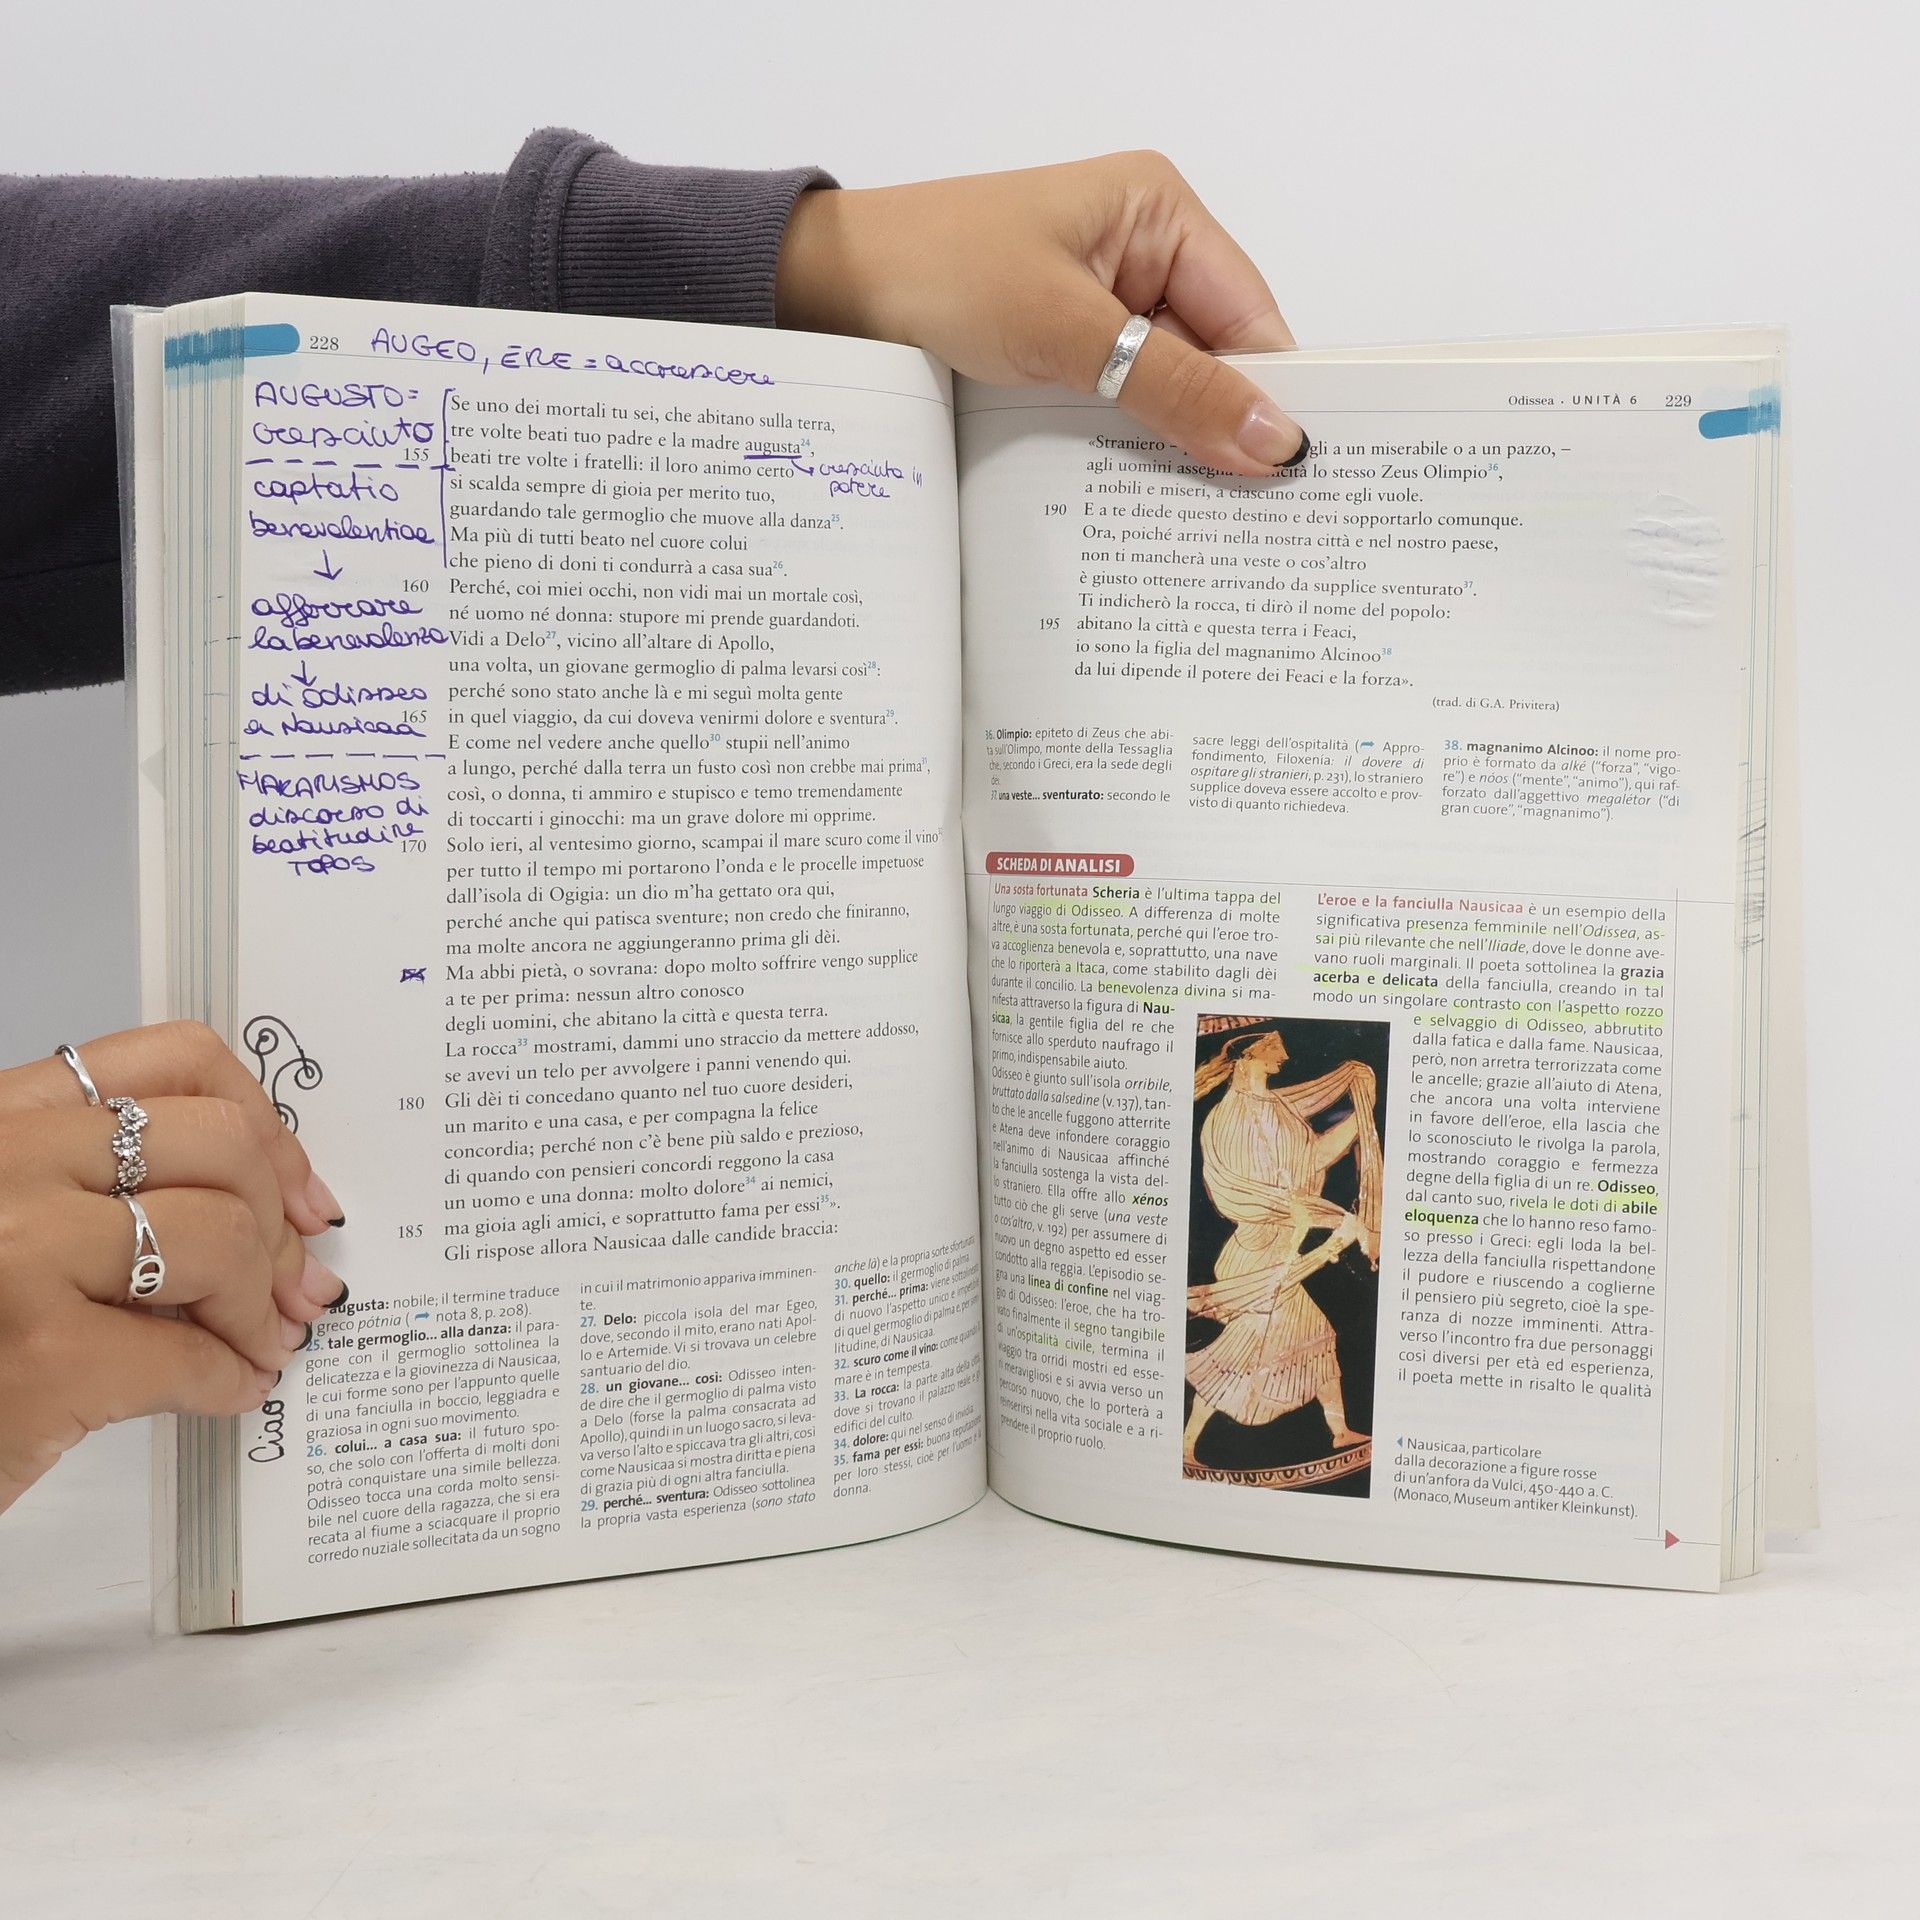 228
AUGEO, ĒRE = accrescere
AUGUSTO =
cresciuto
captatio
benevolentiae
↓
afferrare
la benevolenza
↓
di Odisseo
a Nausicaa
MAKARISMOS
discorso di
beatitudine
TOPOS
Se uno dei mortali tu sei, che abitano sulla terra,
tre volte beati tuo padre e la madre augusta24,
155 beati tre volte i fratelli: il loro animo certo
cresciuta in
potere
si scalda sempre di gioia per merito tuo,
guardando tale germoglio che muove alla danza25.
Ma più di tutti beato nel cuore colui
che pieno di doni ti condurrà a casa sua26.
160 Perché, coi miei occhi, non vidi mai un mortale così,
né uomo né donna: stupore mi prende guardandoti.
Vidi a Delo27, vicino all'altare di Apollo,
una volta, un giovane germoglio di palma levarsi così28:
perché sono stato anche là e mi seguì molta gente
165 in quel viaggio, da cui doveva venirmi dolore e sventura29.
E come nel vedere anche quello30 stupii nell'animo
a lungo, perché dalla terra un fusto così non crebbe mai prima31,
così, o donna, ti ammiro e stupisco e temo tremendamente
di toccarti i ginocchi: ma un grave dolore mi opprime.
170 Solo ieri, al ventesimo giorno, scampai il mare scuro come il vino32
per tutto il tempo mi portarono l'onda e le procelle impetuose
dall'isola di Ogigia: un dio m'ha gettato ora qui,
perché anche qui patisca sventure; non credo che finiranno,
ma molte ancora ne aggiungeranno prima gli dèi.
Ma abbi pietà, o sovrana: dopo molto soffrire vengo supplice
a te per prima: nessun altro conosco
degli uomini, che abitano la città e questa terra.
La rocca33 mostrami, dammi uno straccio da mettere addosso,
se avevi un telo per avvolgere i panni venendo qui.
180 Gli dèi ti concedano quanto nel tuo cuore desideri,
un marito e una casa, e per compagna la felice
concordia; perché non c'è bene più saldo e prezioso,
di quando con pensieri concordi reggono la casa
un uomo e una donna: molto dolore34 ai nemici,
185 ma gioia agli amici, e soprattutto fama per essi35».
Gli rispose allora Nausicaa dalle candide braccia:
Ciao
augusta: nobile; il termine traduce
greco pótnia ( nota 8, p. 208).
25. tale germoglio... alla danza: il para-
gone con il germoglio sottolinea la
delicatezza e la giovinezza di Nausicaa,
le cui forme sono per l'appunto quelle
di una fanciulla in boccio, leggiadra e
graziosa in ogni suo movimento.
26. colui... a casa sua: il futuro spo-
so, che solo con l'offerta di molti doni
potrà conquistare una simile bellezza.
Odisseo tocca una corda molto sensi-
bile nel cuore della ragazza, che si era
recata al fiume a sciacquare il proprio
corredo nuziale sollecitata da un sogno
in cui il matrimonio appariva imminen-
te.
27. Delo: piccola isola del mar Egeo,
dove, secondo il mito, erano nati Apol-
lo e Artemide. Vi si trovava un celebre
santuario del dio.
28. un giovane... così: Odisseo inten-
de dire che il germoglio di palma visto
a Delo (forse la palma consacrata ad
Apollo), quindi in un luogo sacro, si leva-
va verso l'alto e spiccava tra gli altri, così
come Nausicaa si mostra diritta e piena
di grazia più di ogni altra fanciulla.
29. perché... sventura: Odisseo sottolinea
la propria vasta esperienza (sono stato
anche là) e la propria sorte sfortunata.
30. quello: il germoglio di palma.
31. perché... prima: viene sottolineato
di nuovo l'aspetto unico e
di quel germoglio di palma e, per
litudine, di Nausicaa.
32. scuro come il vino: come quando il
mare è in tempesta.
33. La rocca: la parte alta della città
dove si trovano il palazzo reale e gli
edifici del culto.
34. dolore: qui nel senso di invidia.
35. fama per essi: buona reputazione
per loro stessi, cioè per l'uomo e la
donna.
Odissea • UNITÀ 6 229
«Straniero – gli a un miserabile o a un pazzo, –
agli uomini assegna lo stesso Zeus Olimpio36,
a nobili e miseri, a ciascuno come egli vuole.
190 E a te diede questo destino e devi sopportarlo comunque.
Ora, poiché arrivi nella nostra città e nel nostro paese,
non ti mancherà una veste o cos'altro
è giusto ottenere arrivando da supplice sventurato37.
Ti indicherò la rocca, ti dirò il nome del popolo:
195 abitano la città e questa terra i Feaci,
io sono la figlia del magnanimo Alcinoo38
da lui dipende il potere dei Feaci e la forza».
(trad. di G.A. Privitera)
36. Olimpio: epiteto di Zeus che abi-
ta sull'Olimpo, monte della Tessaglia
che, secondo i Greci, era la sede degli
dèi.
37. una veste... sventurato: secondo le
sacre leggi dell'ospitalità ( Appro-
fondimento, Filoxenía: il dovere di
ospitare gli stranieri, p. 231), lo straniero
supplice doveva essere accolto e prov-
visto di quanto richiedeva.
38. magnanimo Alcinoo: il nome pro-
prio è formato da alké ("forza", "vigo-
re") e nóos ("mente", "animo"), qui raf-
forzato dall'aggettivo megalétor ("di
gran cuore", "magnanimo").
SCHEDA DI ANALISI
Una sosta fortunata Scheria è l'ultima tappa del
lungo viaggio di Odisseo. A differenza di molte
altre, è una sosta fortunata, perché qui l'eroe tro-
va accoglienza benevola e, soprattutto, una nave
che lo riporterà a Itaca, come stabilito dagli dèi
durante il concilio. La benevolenza divina si ma-
nifesta attraverso la figura di Nau-
sicaa, la gentile figlia del re che
fornisce allo sperduto naufrago il
primo, indispensabile aiuto.
Odisseo è giunto sull'isola orribile,
bruttato dalla salsedine (v. 137), tan-
to che le ancelle fuggono atterrite
e Atena deve infondere coraggio
nell'animo di Nausicaa affinché
la fanciulla sostenga la vista del-
lo straniero. Ella offre allo xénos
tutto ciò che gli serve (una veste
o cos'altro, v. 192) per assumere di
nuovo un degno aspetto ed esser
condotto alla reggia. L'episodio se-
gna una linea di confine nel viag-
gio di Odisseo: l'eroe, che ha tro-
vato finalmente il segno tangibile
di un'ospitalità civile, termina il
viaggio tra orridi mostri ed esse-
ri meravigliosi e si avvia verso un
percorso nuovo, che lo porterà a
reinserirsi nella vita sociale e a ri-
prendere il proprio ruolo.
L'eroe e la fanciulla Nausicaa è un esempio della
significativa presenza femminile nell'Odissea, as-
sai più rilevante che nell'Iliade, dove le donne ave-
vano ruoli marginali. Il poeta sottolinea la grazia
acerba e delicata della fanciulla, creando in tal
modo un singolare contrasto con l'aspetto rozzo
e selvaggio di Odisseo, abbrutito
dalla fatica e dalla fame. Nausicaa,
però, non arretra terrorizzata come
le ancelle; grazie all'aiuto di Atena,
che ancora una volta interviene
in favore dell'eroe, ella lascia che
lo sconosciuto le rivolga la parola,
mostrando coraggio e fermezza
degne della figlia di un re. Odisseo,
dal canto suo, rivela le doti di abile
eloquenza che lo hanno reso famo-
so presso i Greci: egli loda la bel-
lezza della fanciulla rispettandone
il pudore e riuscendo a coglierne
il pensiero più segreto, cioè la spe-
ranza di nozze imminenti. Attra-
verso l'incontro fra due personaggi
così diversi per età ed esperienza,
il poeta mette in risalto le qualità
Nausicaa, particolare
dalla decorazione a figure rosse
di un'anfora da Vulci, 450-440 a. C.
(Monaco, Museum antiker Kleinkunst).